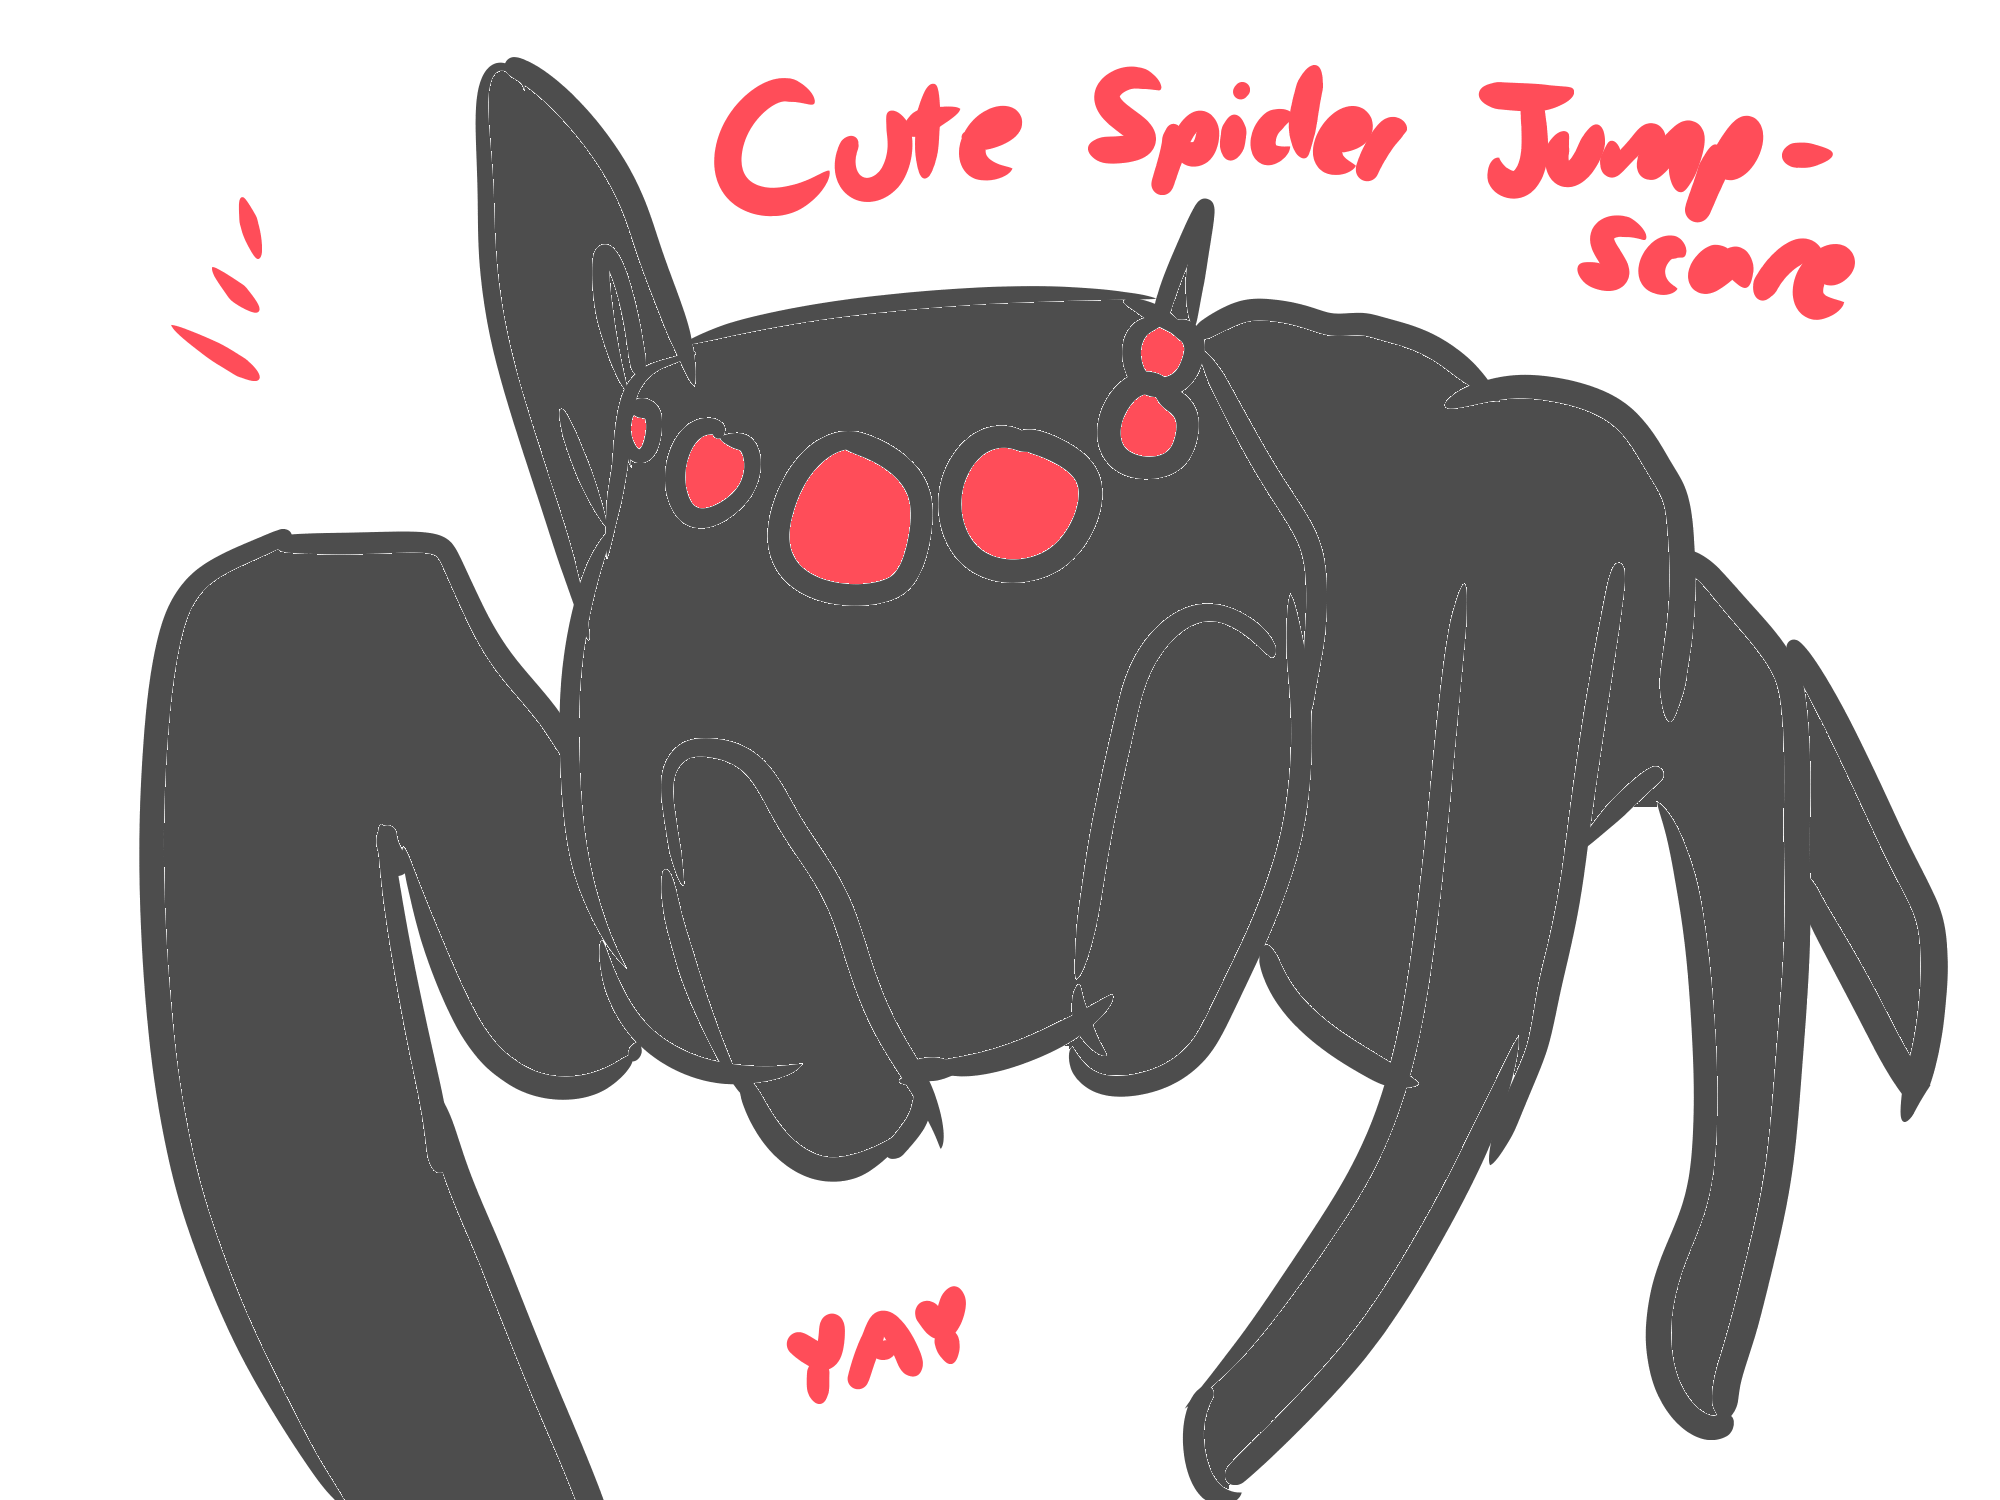 Cute Spider Jump-
scare
YAY